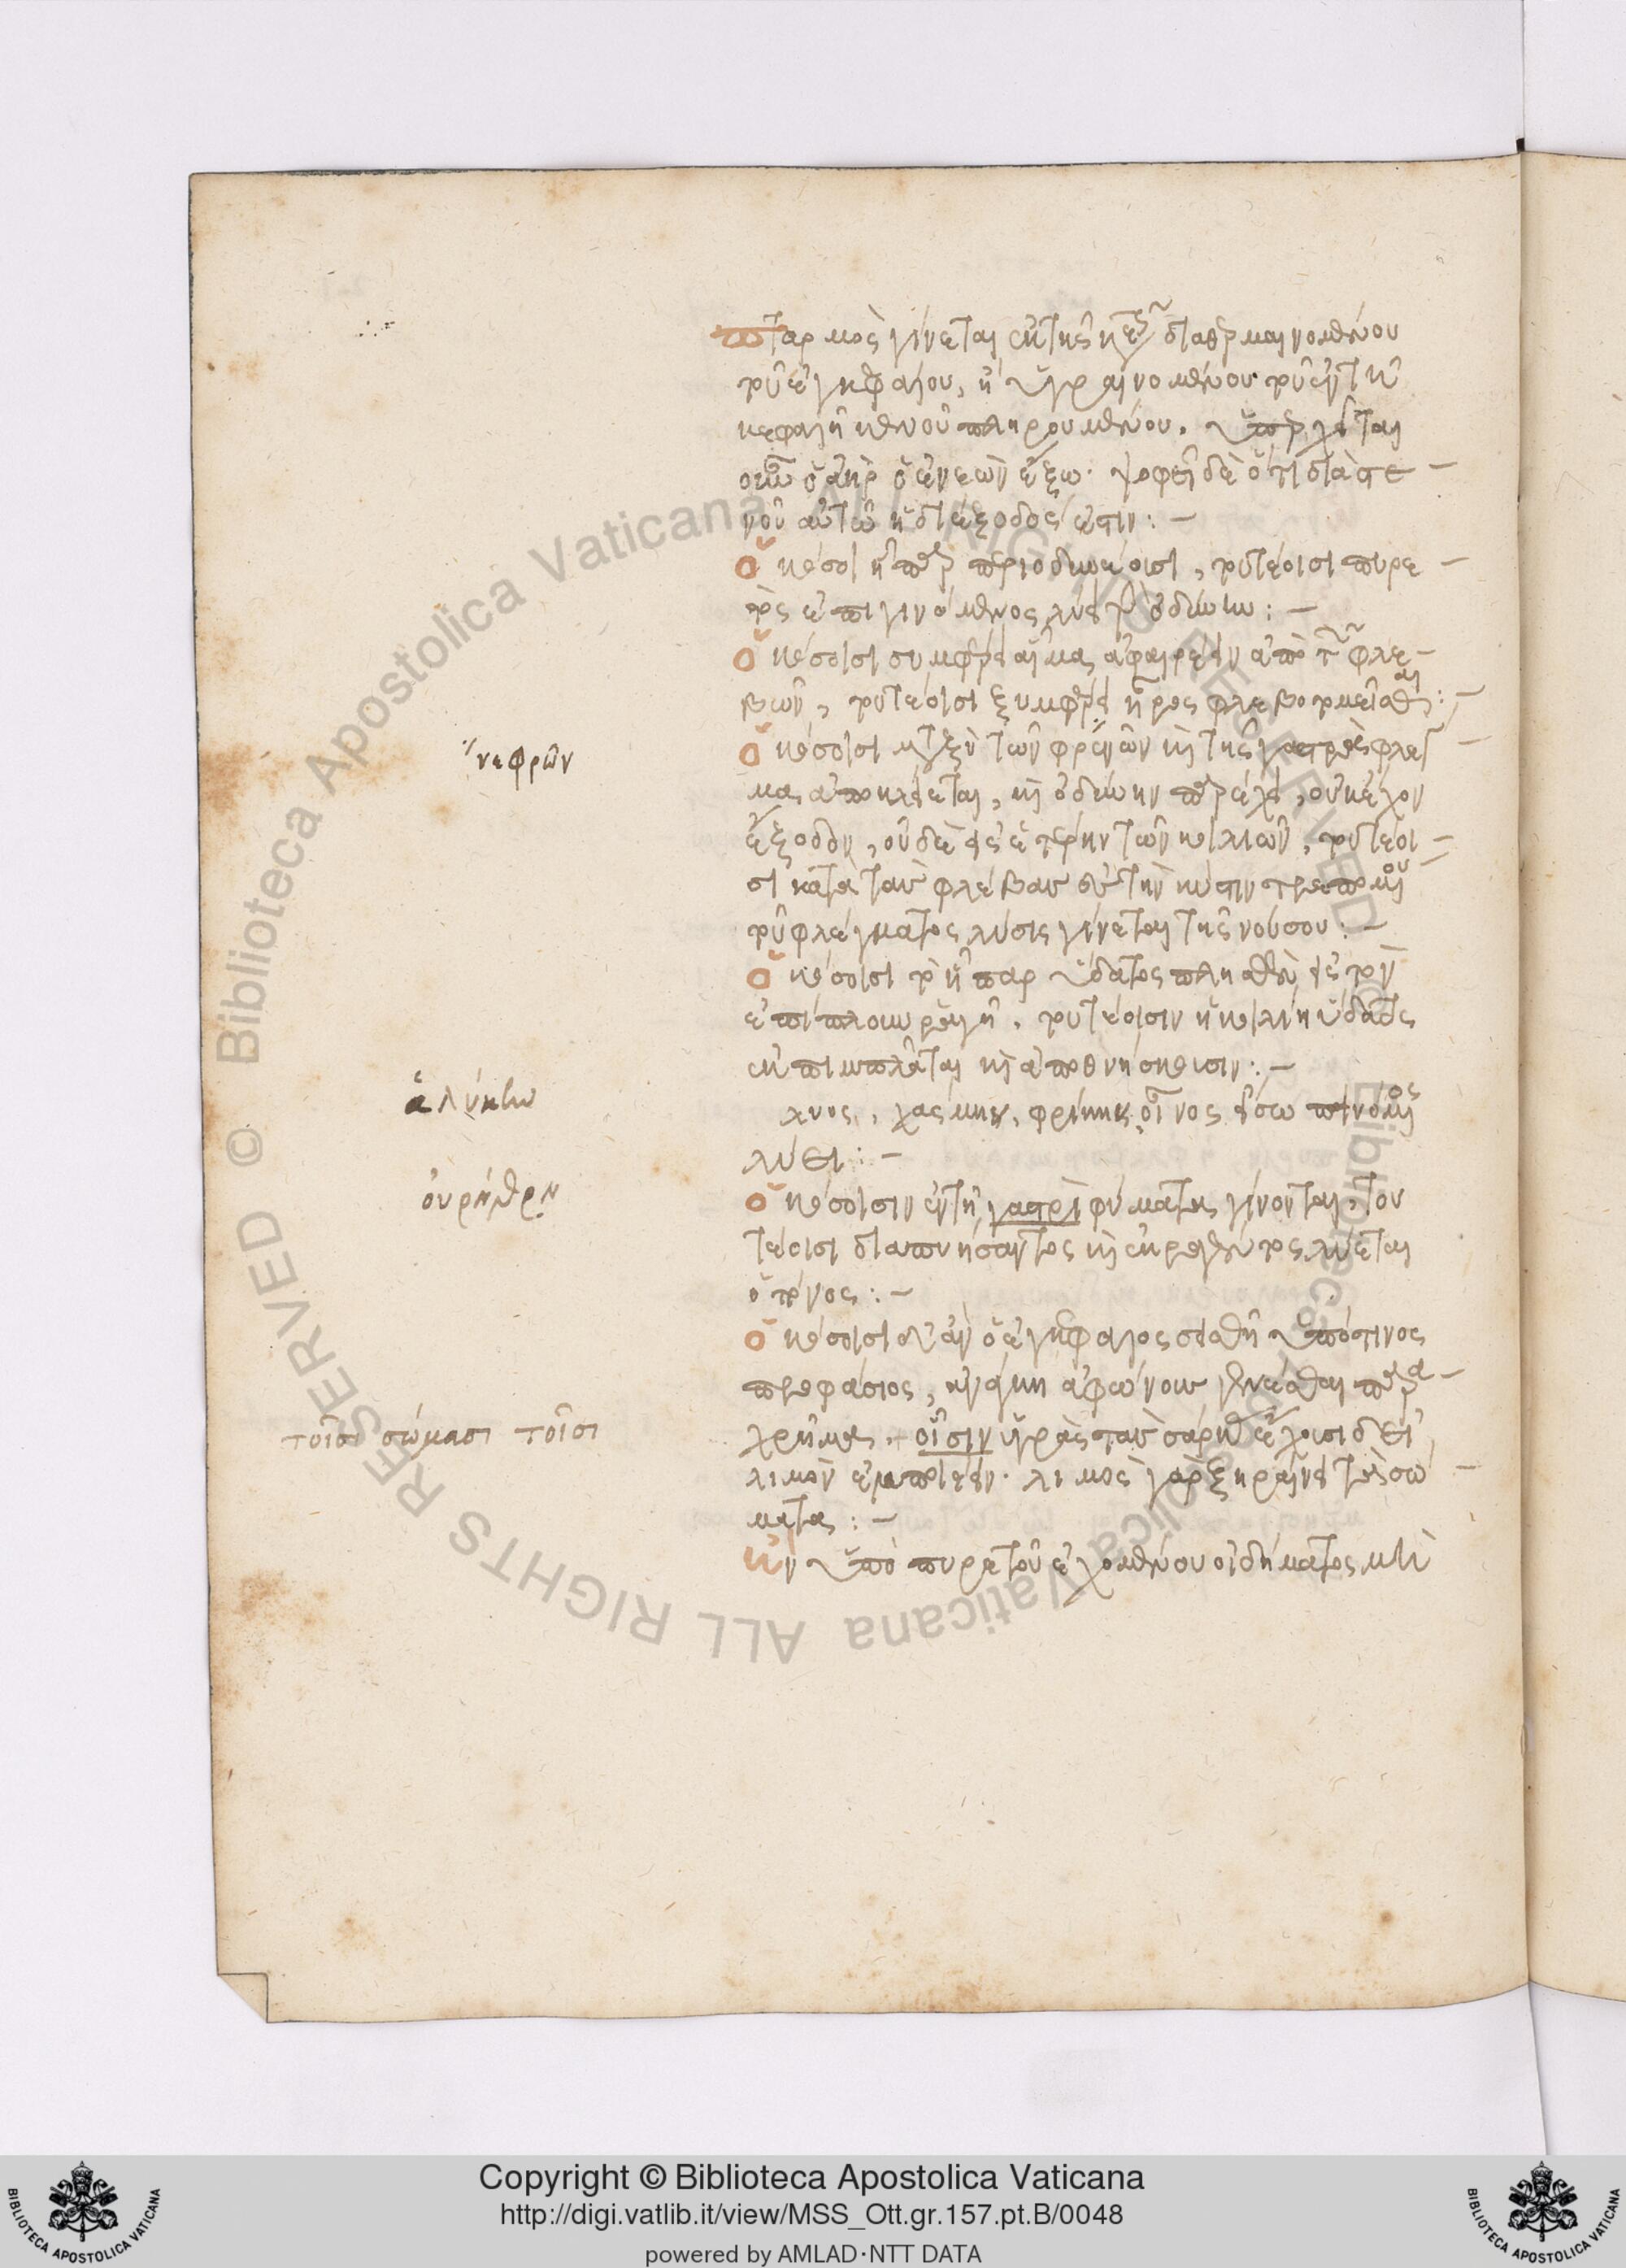 πταρμὸς γίνεται ἐκ τῆς κεφαλῆς διαθερμαινομένου
τοῦ ἐγκεφάλου, ἢ ὑγραινομένου τοῦ ἐν τῇ
κεφαλῇ κενοῦ πληρουμένου. ὑπερχεῖται
οὖν ὁ ἀὴρ ὁ ἐνεὼν ἔξω· ψοφεῖ δὲ ὅτι διὰ στε
νοῦ αὐτῶ ἡ διέξοδός ἐστιν:
ὁκόσοι ἧπαρ περιοδυνέουσι, τουτέοισι πυρε
τὸς ἐπιγινόμενος λύει τὴν ὀδύνην:
ὁκόσοισι συμφέρει αἷμα ἀφαιρέειν ἀπὸ τῶν φλε
βῶν, τουτέοισι ξυμφέρει ἦρος φλεβοτομεῖσθαι:
ὁκόσοισι μεταξὺ τῶν φρενῶν καὶ τῆς γαστρὸς φλεγ
μα ἀποκλείεται, καὶ ὀδύνην παρέχει, οὐκ ἔχον
ἔξοδον, οὐδὲ ἐς ἑτέρην τῶν κοιλιῶν, τουτέοι
σι κατὰ τὰς φλέβας ἐς τὴν κύστιν τρεπομένου
τοῦ φλέγματος λύσις γίνεται τῆς νούσου:
ὁκόσοισι τὸ ἧπαρ ὕδατος πλησθὲν ἐς τὸν
ἐπίπλοον ῥαγῇ, τουτέοισιν ἡ κοιλίη ὕδατος
ἐμπίπλαται καὶ ἀποθνήσκουσιν:
λυος, χάσμη, φρίκη, οἶνος ἴσω πινόμενος
λύει:
ὁκόσοισιν ἐν τῇ γαστρὶ φύματα γίνονται, του
τέοισι διαπυήσαντος καὶ ἐκραγέντος λύεται
ὁ πόνος:
ὁκόσοισι ἂν ὁ ἐγκέφαλος σεισθῇ ὑπό τινος
προφάσιος, ἀνάγκη ἀφώνους γενέσθαι παρα
χρῆμα. οἷσιν ὑγρὰς τὰς σάρκας ἔχουσι δεῖ
λιμὸν ἐμποιέειν· λιμὸς γὰρ ξηραίνει τὰ σώ
ματα:
ἢν ὑπὸ πυρετοῦ ἐχομένου οἰδήματος μὴ
νεφρῶν
ἀλύκην
οὐρήθρῃ
τοῖσι σώμασι τοῖσι
Copyright © Biblioteca Apostolica Vaticana
http://digi.vatlib.it/view/MSS_Ott.gr.157.pt.B/0048
powered by AMLAD·NTT DATA
BIBLIOTECA APOSTOLICA VATICANA
BIBLIOTECA APOSTOLICA VATICANA
© Biblioteca Apostolica Vaticana ALL RIGHTS RESERVED
© Biblioteca Apostolica Vaticana ALL RIGHTS RESERVED